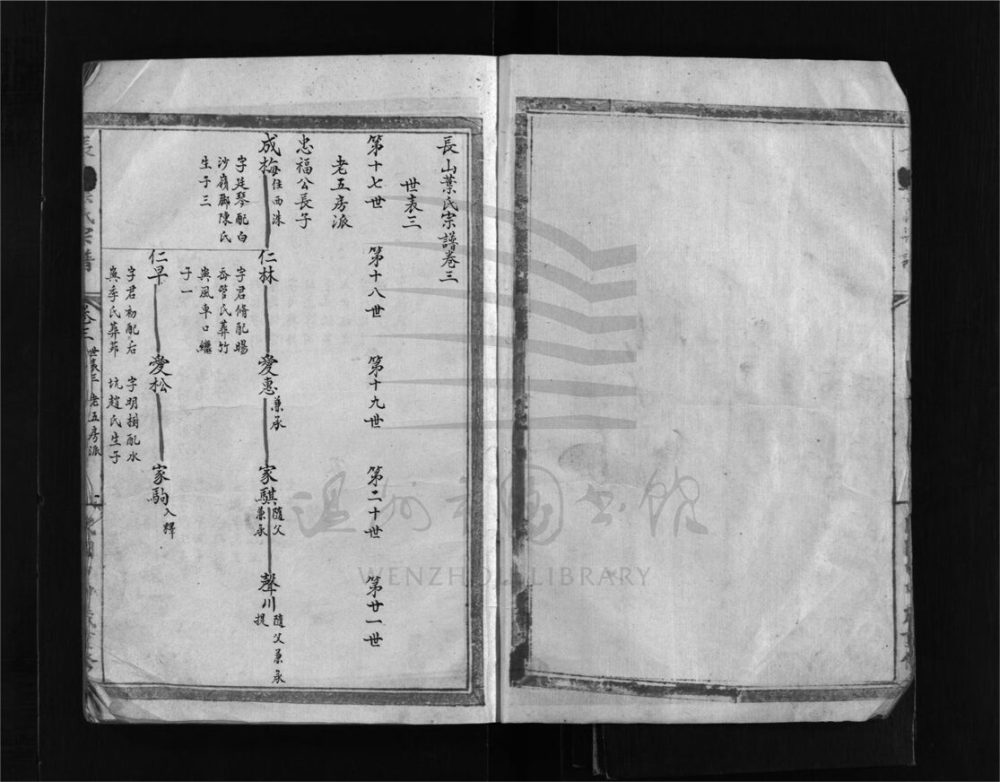 長山葉氏宗譜卷三
世表三
第十七世
第十八世
第十九世
第二十世
第廿一世
老五房派
忠福公長子
成梅
住西洙
字廷琴配白
沙嶺腳陳氏
生子三
仁林
字君脩配賜
岙管氏葬竹
與風車口繼
子一
愛惠
兼承
家騏
隨父
兼承
聲川
隨父兼承
挑
仁早
字君初配后
愛松
字明樹配水
坑趙氏生子
家駒
入釋
世表三 老五房派
溫州市圖書館
WENZHOU LIBRARY